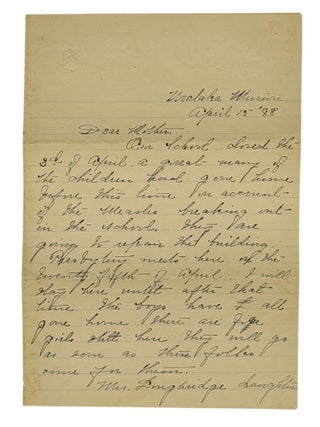 Wealaka Mission
April 15 '88
Dear Mother
Our School closed the
3rd of April a great many of
the children had gone home
before this time on account
of the Measles breaking out
in the school. they are
going to repair the building.
Presbytery meets here the
twenty fifth of April I will
stay here untill after that
time. the boys have all
gone home there are five
girls still here they will go
as soon as their folks
come for them.
Mrs. Loughridge daughter